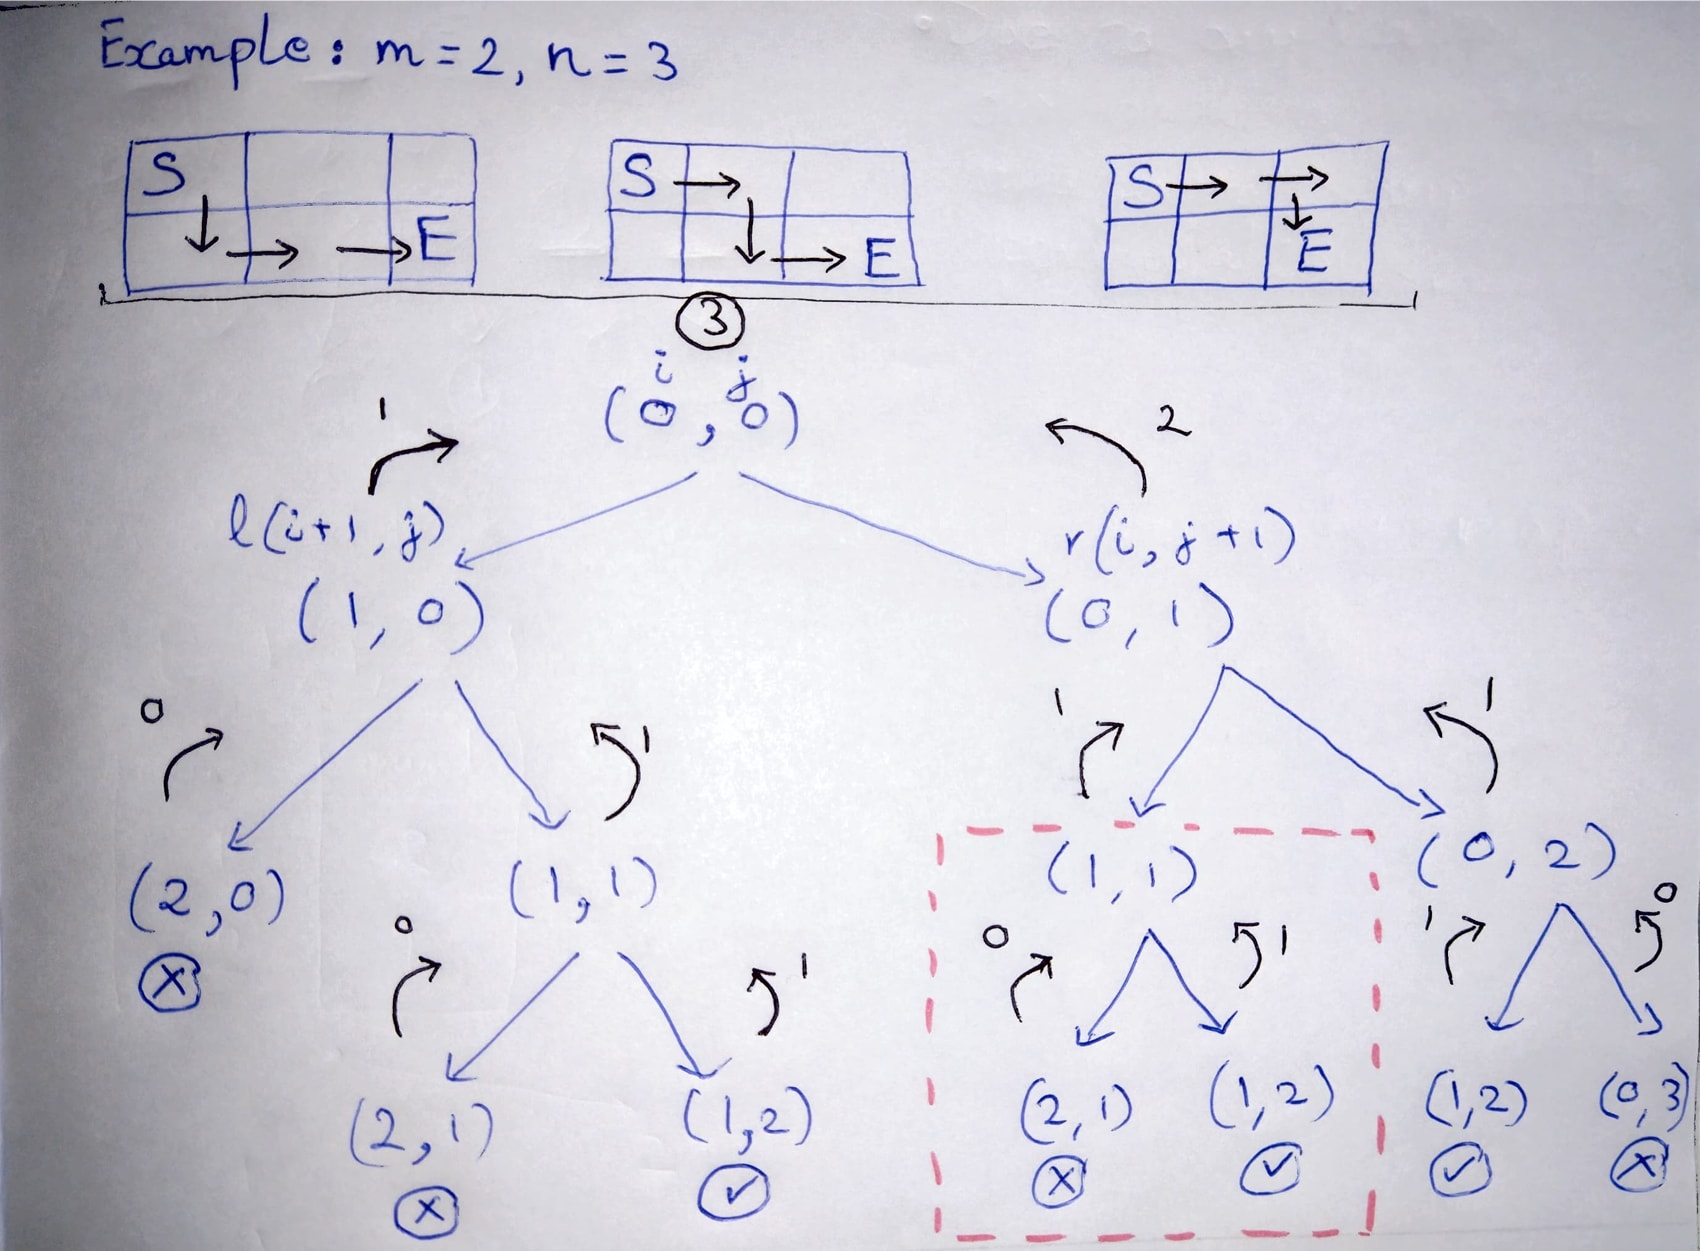 Example: m = 2, n = 3
S
E
S
E
S
E
3
i j
(0, 0)
1
2
l(i+1, j)
r(i, j+1)
(1, 0)
(0, 1)
0
1
1
1
(2, 0)
(1, 1)
(1, 1)
(0, 2)
0
1
0
1
1
0
(2, 1)
(1, 2)
(2, 1)
(1, 2)
(1, 2)
(0, 3)